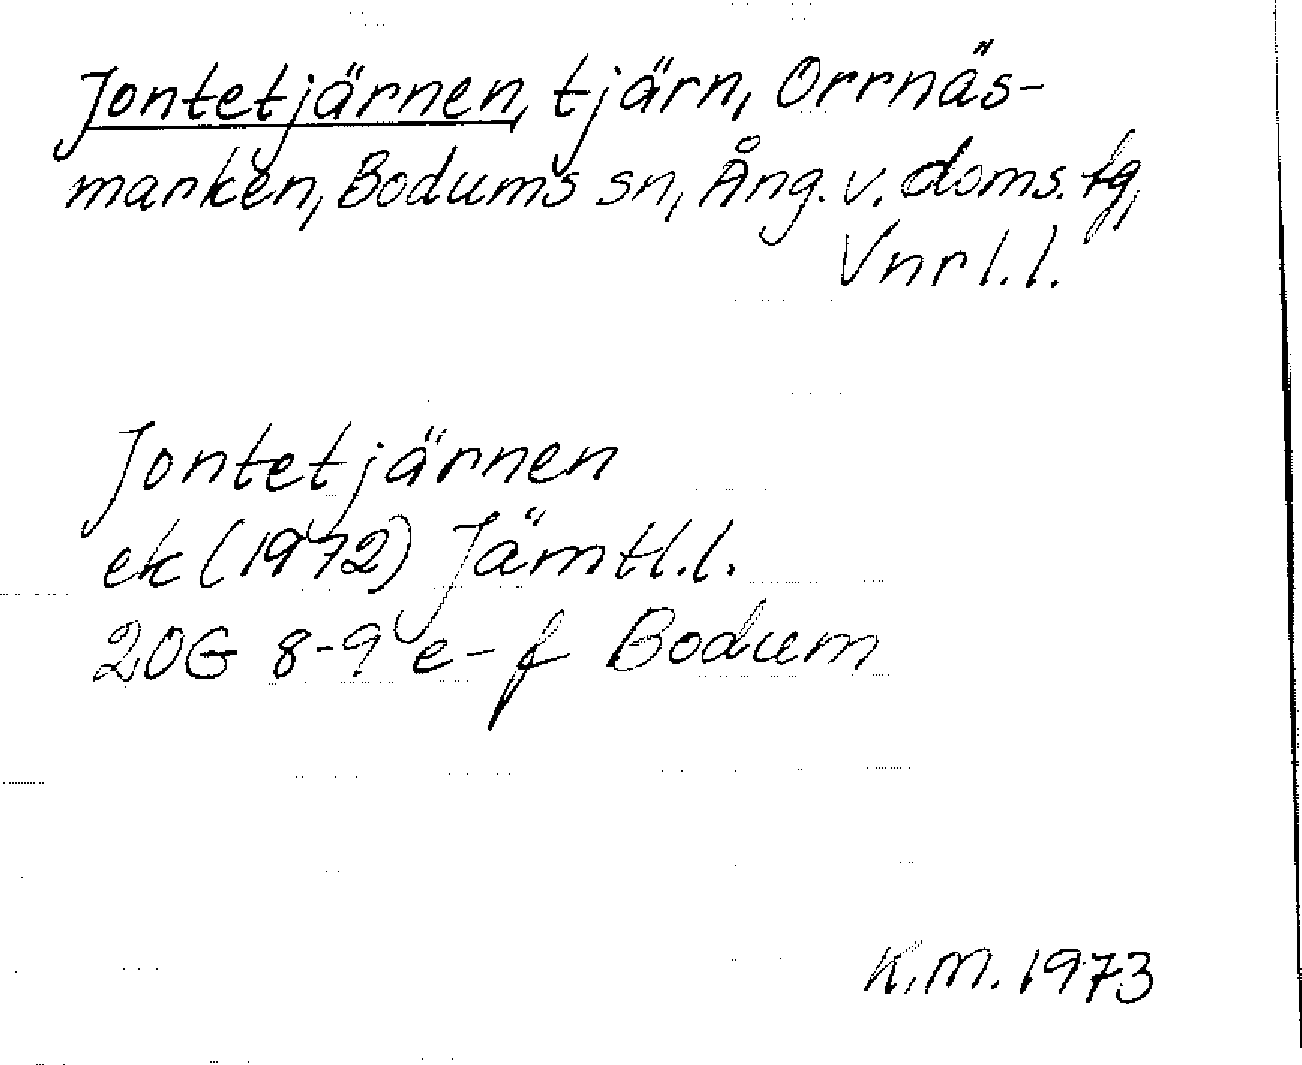 Jontetjärnen, tjärn, Orrnäs-
marken, Bodums sn, Ång. v. doms. tg,
Vnrl. l.
Jontetjärnen
ek (1972) Jämtl. l.
20G 8-9 e-f Bodum
K.M. 1973